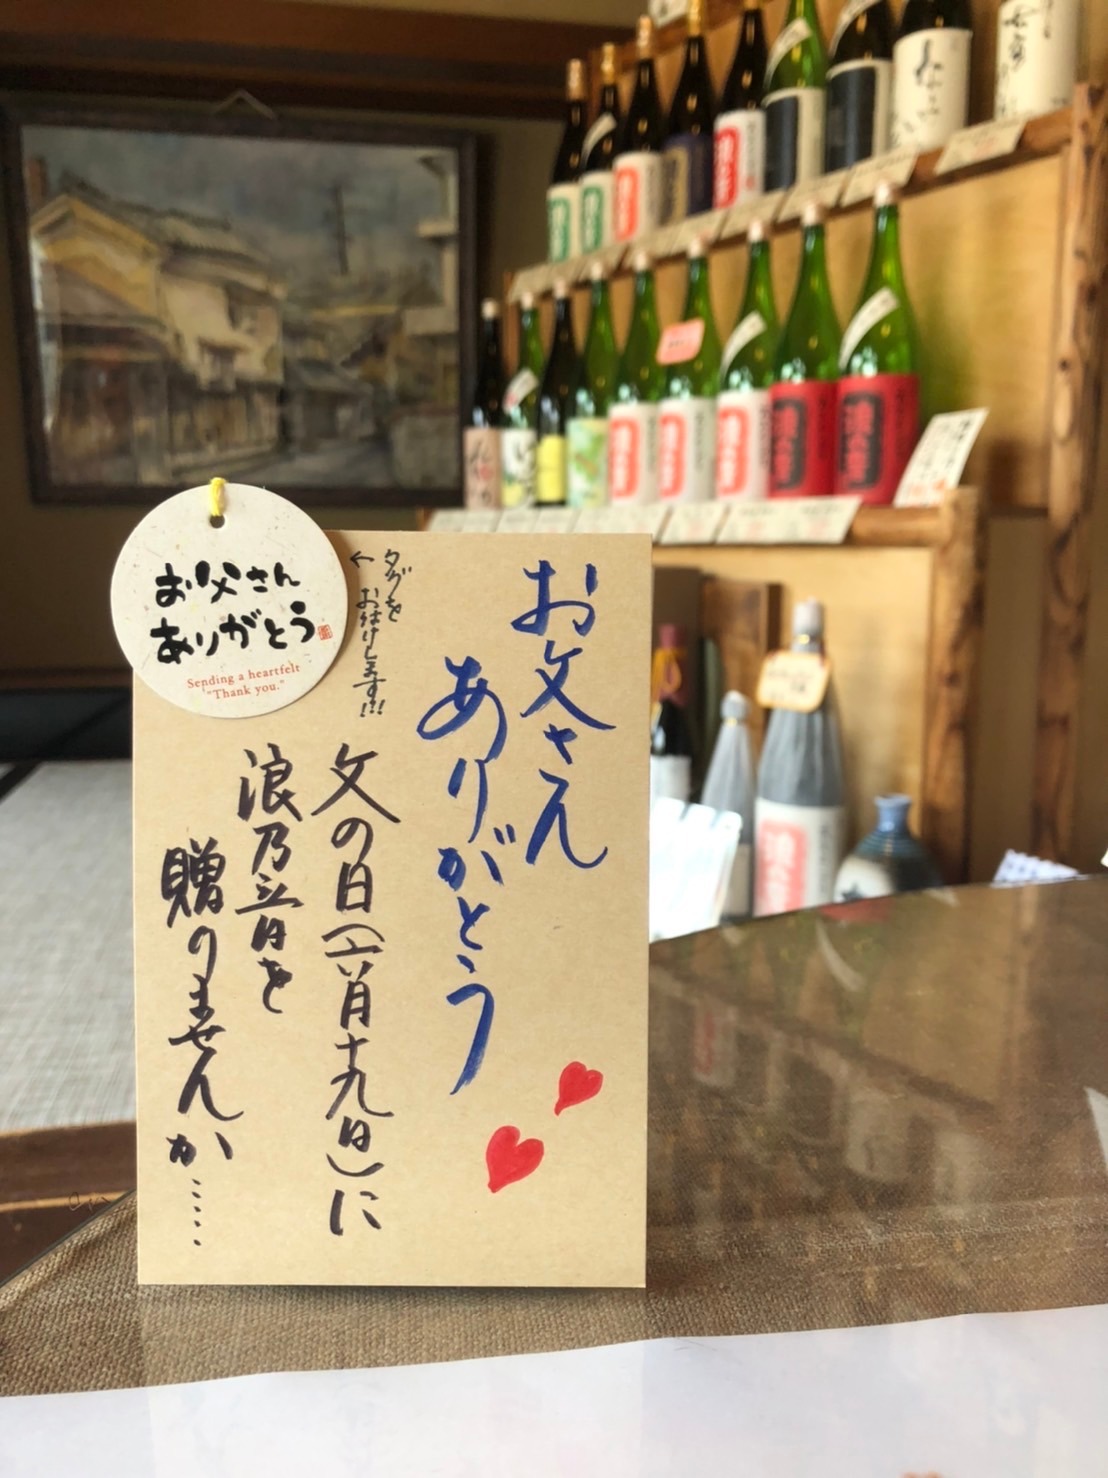 お父さん
ありがとう
タグを
おつけします!!!
←
父の日(六月十九日)に
浪乃音を
贈りませんか……
お父さん
ありがとう
Sending a heartfelt
"Thank you."